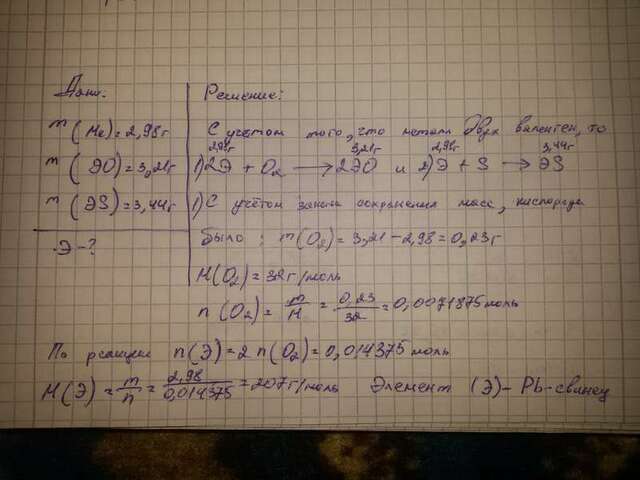 Дано:
m(Me)=2,98г
m(ЭО)=3,21г
m(ЭS)=3,44г
Э-?
Решение:
С учётом того, что металл двухвалентен, то
2,98г 3,21г 2,98г 3,44г
1) 2Э + O₂ → 2ЭО и 2) Э + S → ЭS
1) С учётом закона сохранения масс, кислорода
было: m(O₂)=3,21-2,98=0,23г
M(O₂)=32г/моль
n(O₂)=m/M=0,23/32=0,0071875моль
По реакции n(Э)=2n(O₂)=0,014375моль
M(Э)=m/n=2,98/0,014375=207г/моль Элемент (Э)-Pb-свинец